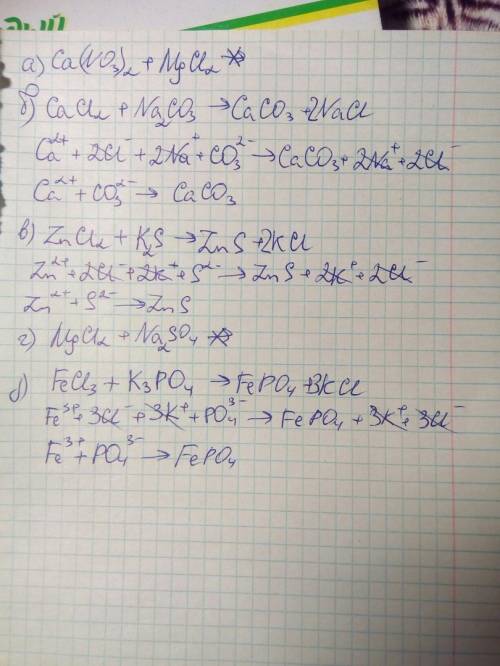 ЫЙ
а) Ca(NO₃)₂ + MgCl₂ ↛
б) CaCl₂ + Na₂CO₃ → CaCO₃ + 2NaCl
Ca²⁺ + 2Cl⁻ + 2Na⁺ + CO₃²⁻ → CaCO₃ + 2Na⁺ + 2Cl⁻
Ca²⁺ + CO₃²⁻ → CaCO₃
в) ZnCl₂ + K₂S → ZnS + 2KCl
Zn²⁺ + 2Cl⁻ + 2K⁺ + S²⁻ → ZnS + 2K⁺ + 2Cl⁻
Zn²⁺ + S²⁻ → ZnS
г) MgCl₂ + Na₂SO₄ ↛
д) FeCl₃ + K₃PO₄ → FePO₄ + 3KCl
Fe³⁺ + 3Cl⁻ + 3K⁺ + PO₄³⁻ → FePO₄ + 3K⁺ + 3Cl⁻
Fe³⁺ + PO₄³⁻ → FePO₄